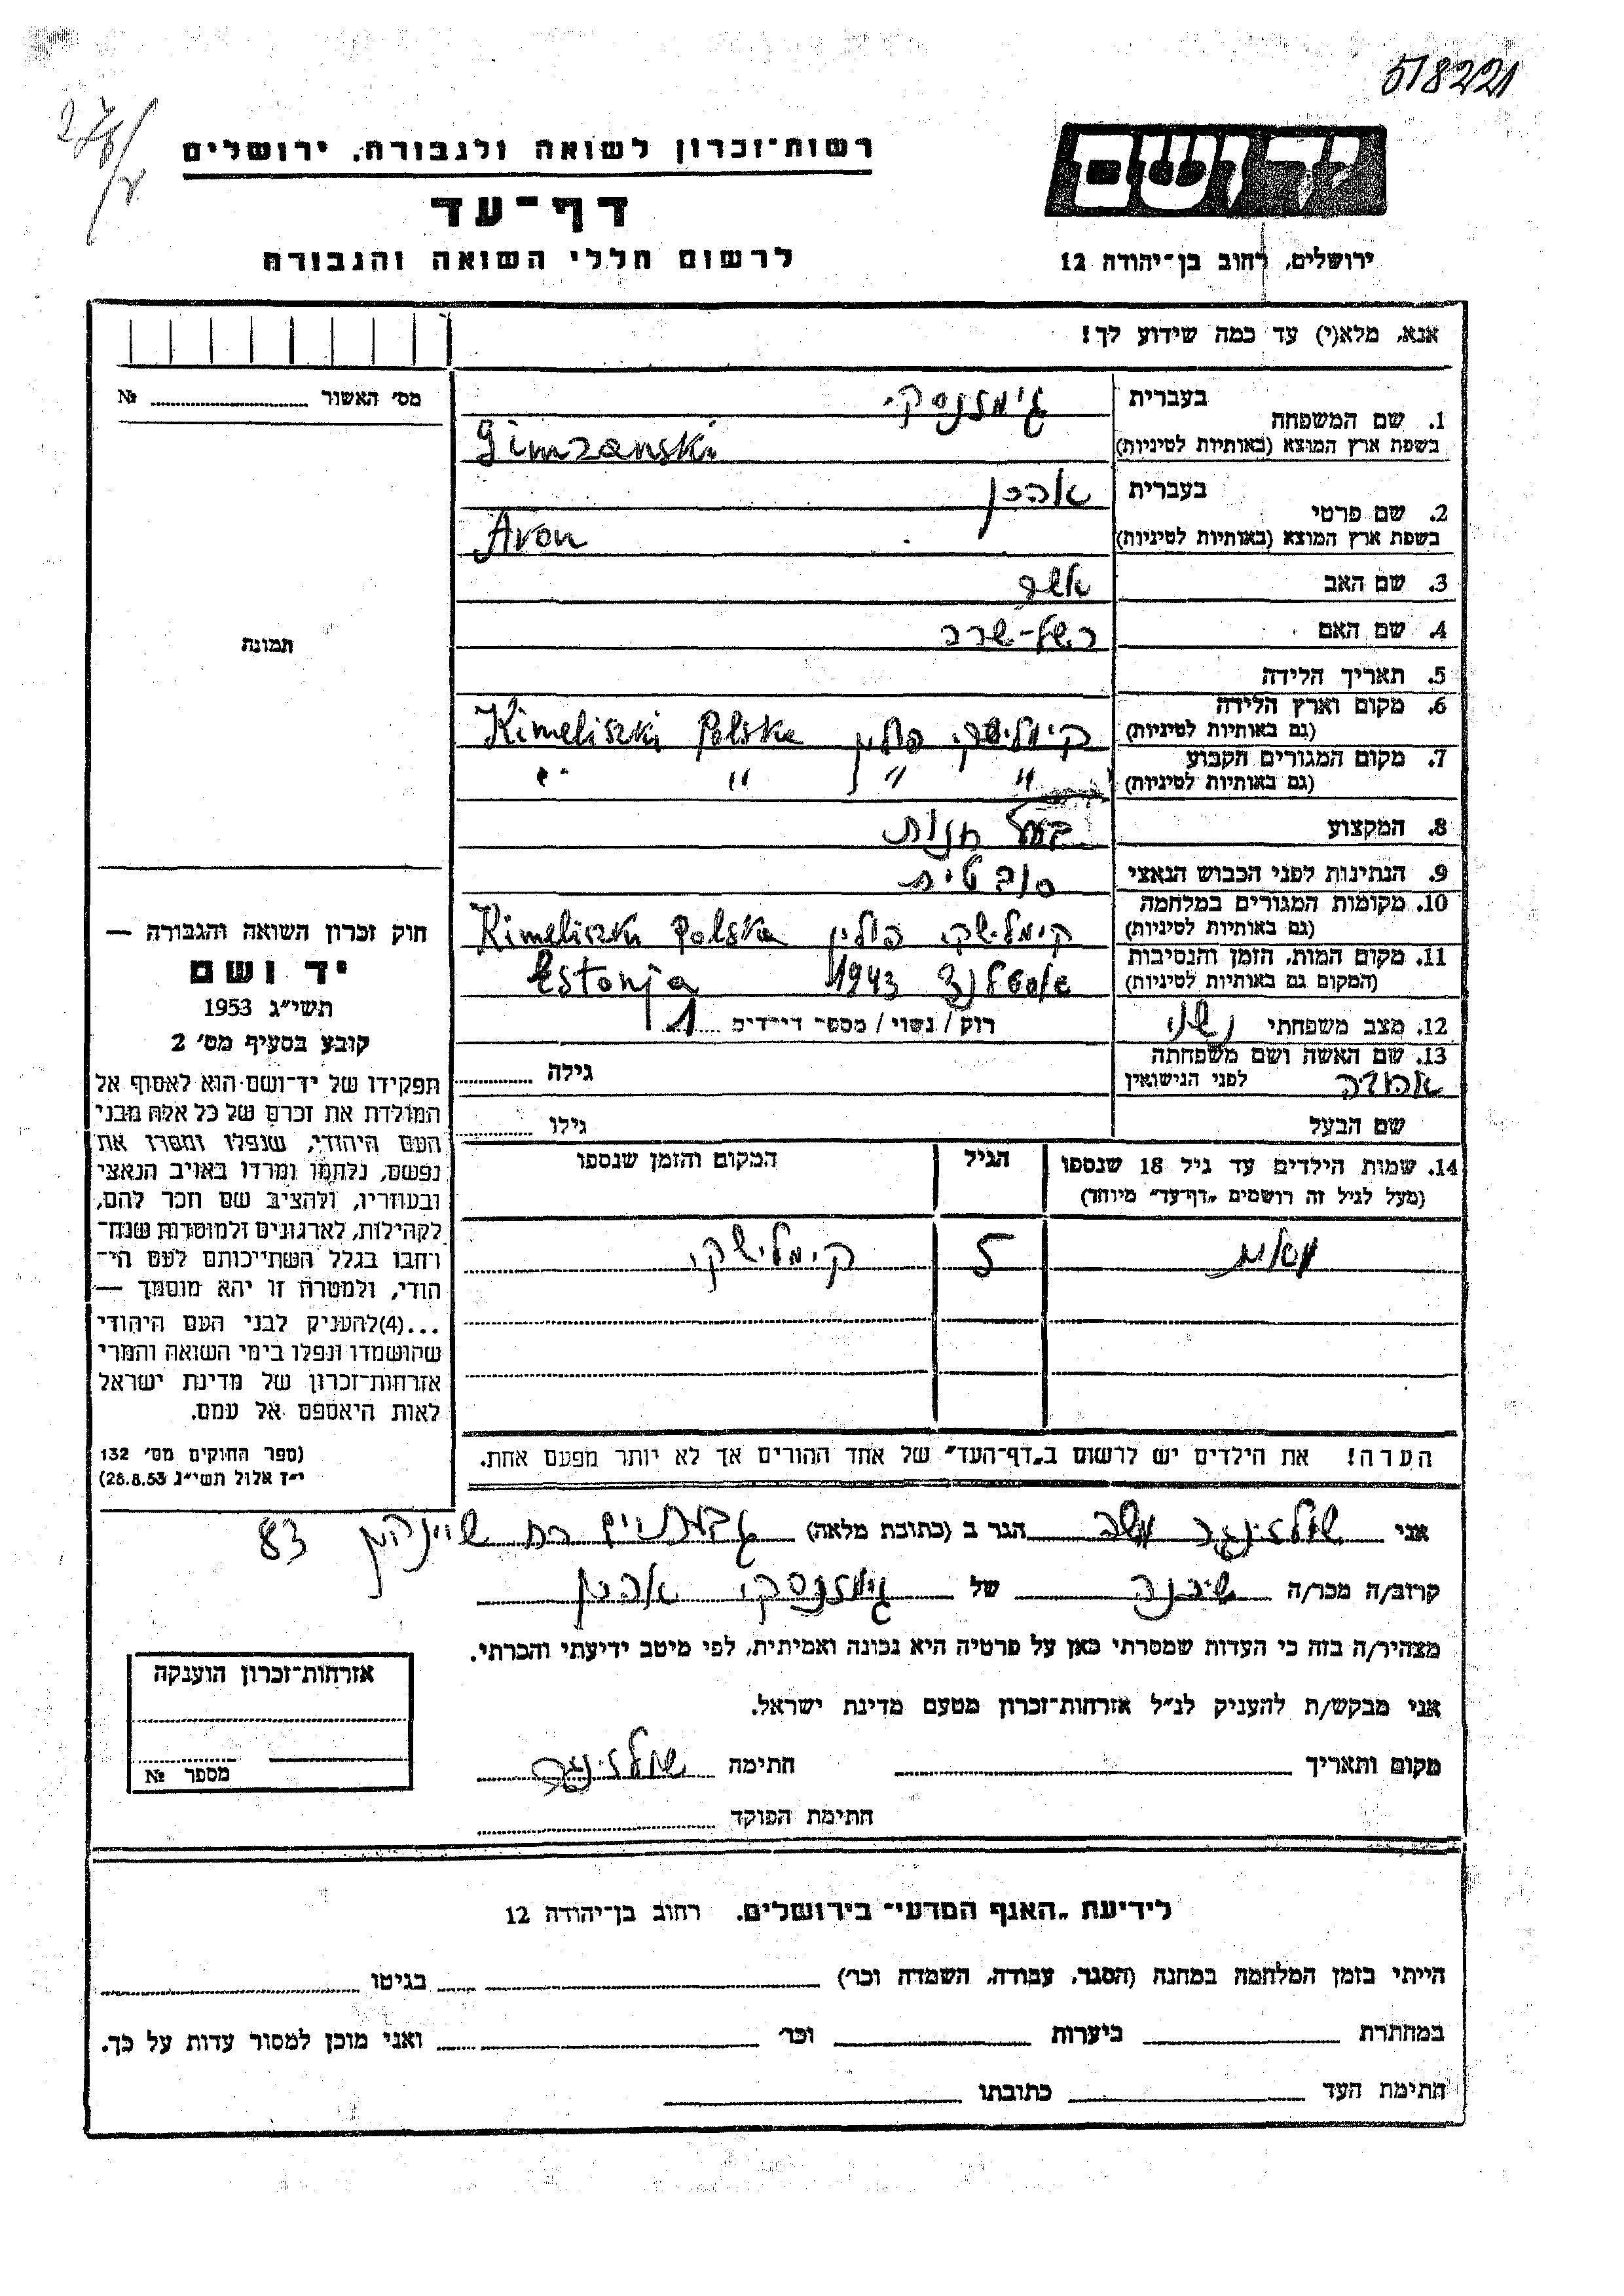 518221
רשות־זכרון לשואה ולגבורה. ירושלים
דף־עד
לרשום חללי השואה והגבורה
יד ושם
ירושלים, רחוב בן־יהודה 12
אנא, מלא(י) עד כמה שידוע לך!
מס׳ האשור №
1. שם המשפחה
בעברית גימזנסקי
בשפת ארץ המוצא (באותיות לטיניות) Gimzanski
2. שם פרטי
בעברית אהרן
בשפת ארץ המוצא (באותיות לטיניות) Aron
3. שם האב אשר
4. שם האם
5. תאריך הלידה
6. מקום וארץ הלידה
(גם באותיות לטיניות) קימלישקי פולין Kimeliszki Polska
7. מקום המגורים הקבוע
(גם באותיות לטיניות) " " " "
8. המקצוע בעל חנות
9. הנתינות לפני הכבוש הנאצי סובטית
10. מקומות המגורים במלחמה
(גם באותיות לטיניות) קימלישקי פולין Kimeliszki Polska
11. מקום המות, הזמן והנסיבות
(המקום גם באותיות לטיניות) 1943 Estonja
12. מצב משפחתי נשוי רוק / נשוי / מספר הילדים 1
13. שם האשה ושם משפחתה
לפני הנישואין גילה
שם הבעל גילו
14. שמות הילדים עד גיל 18 שנספו
(מעל לגיל זה רושמים „דף־עד״ מיוחד)
הגיל
המקום והזמן שנספו
5 קימלישקי
הערה! את הילדים יש לרשום ב„דף־העד״ של אחד ההורים אך לא יותר מפעם אחת.
תמונה
חוק זכרון השואה והגבורה —
יד ושם
תשי״ג 1953
קובע בסעיף מס׳ 2
תפקידו של יד־ושם הוא לאסוף אל
המולדת את זכרם של כל אלה מבני
העם היהודי, שנפלו ומסרו את
נפשם, נלחמו ומרדו באויב הנאצי
ובעוזריו, ולהציב שם וזכר להם,
לקהילות, לארגונים ולמוסדות שנח־
רחבו בגלל השתייכותם לעם הי־
הודי, ולמטרה זו יהא מוסמך —
...(4)להעניק לבני העם היהודי
שהושמדו ונפלו בימי השואה והמרי
אזרחות־זכרון של מדינת ישראל
לאות היאספם אל עמם.
(ספר החוקים מס׳ 132
י״ז אלול תשי״ג 28.8.53)
אני שולזינגר אשר הגר ב (כתובת מלאה) 83
קרוב/ה מכר/ה שכנה של גימזנסקי אהרן
מצהיר/ה בזה כי העדות שמסרתי כאן על פרטיה היא נכונה ואמיתית, לפי מיטב ידיעתי והכרתי.
אני מבקש/ת להעניק לנ״ל אזרחות־זכרון מטעם מדינת ישראל.
מקום ותאריך חתימה שולזינגר
חתימת הפוקד
אזרחות־זכרון הוענקה
מספר №
לידיעת „האגף המדעי״ בירושלים. רחוב בן־יהודה 12
הייתי בזמן המלחמה במחנה (הסגר, עבודה, השמדה וכר׳) בגיטו
במחתרת ביערות וכר׳ ואני מוכן למסור עדות על כך.
חתימת העד כתובתו